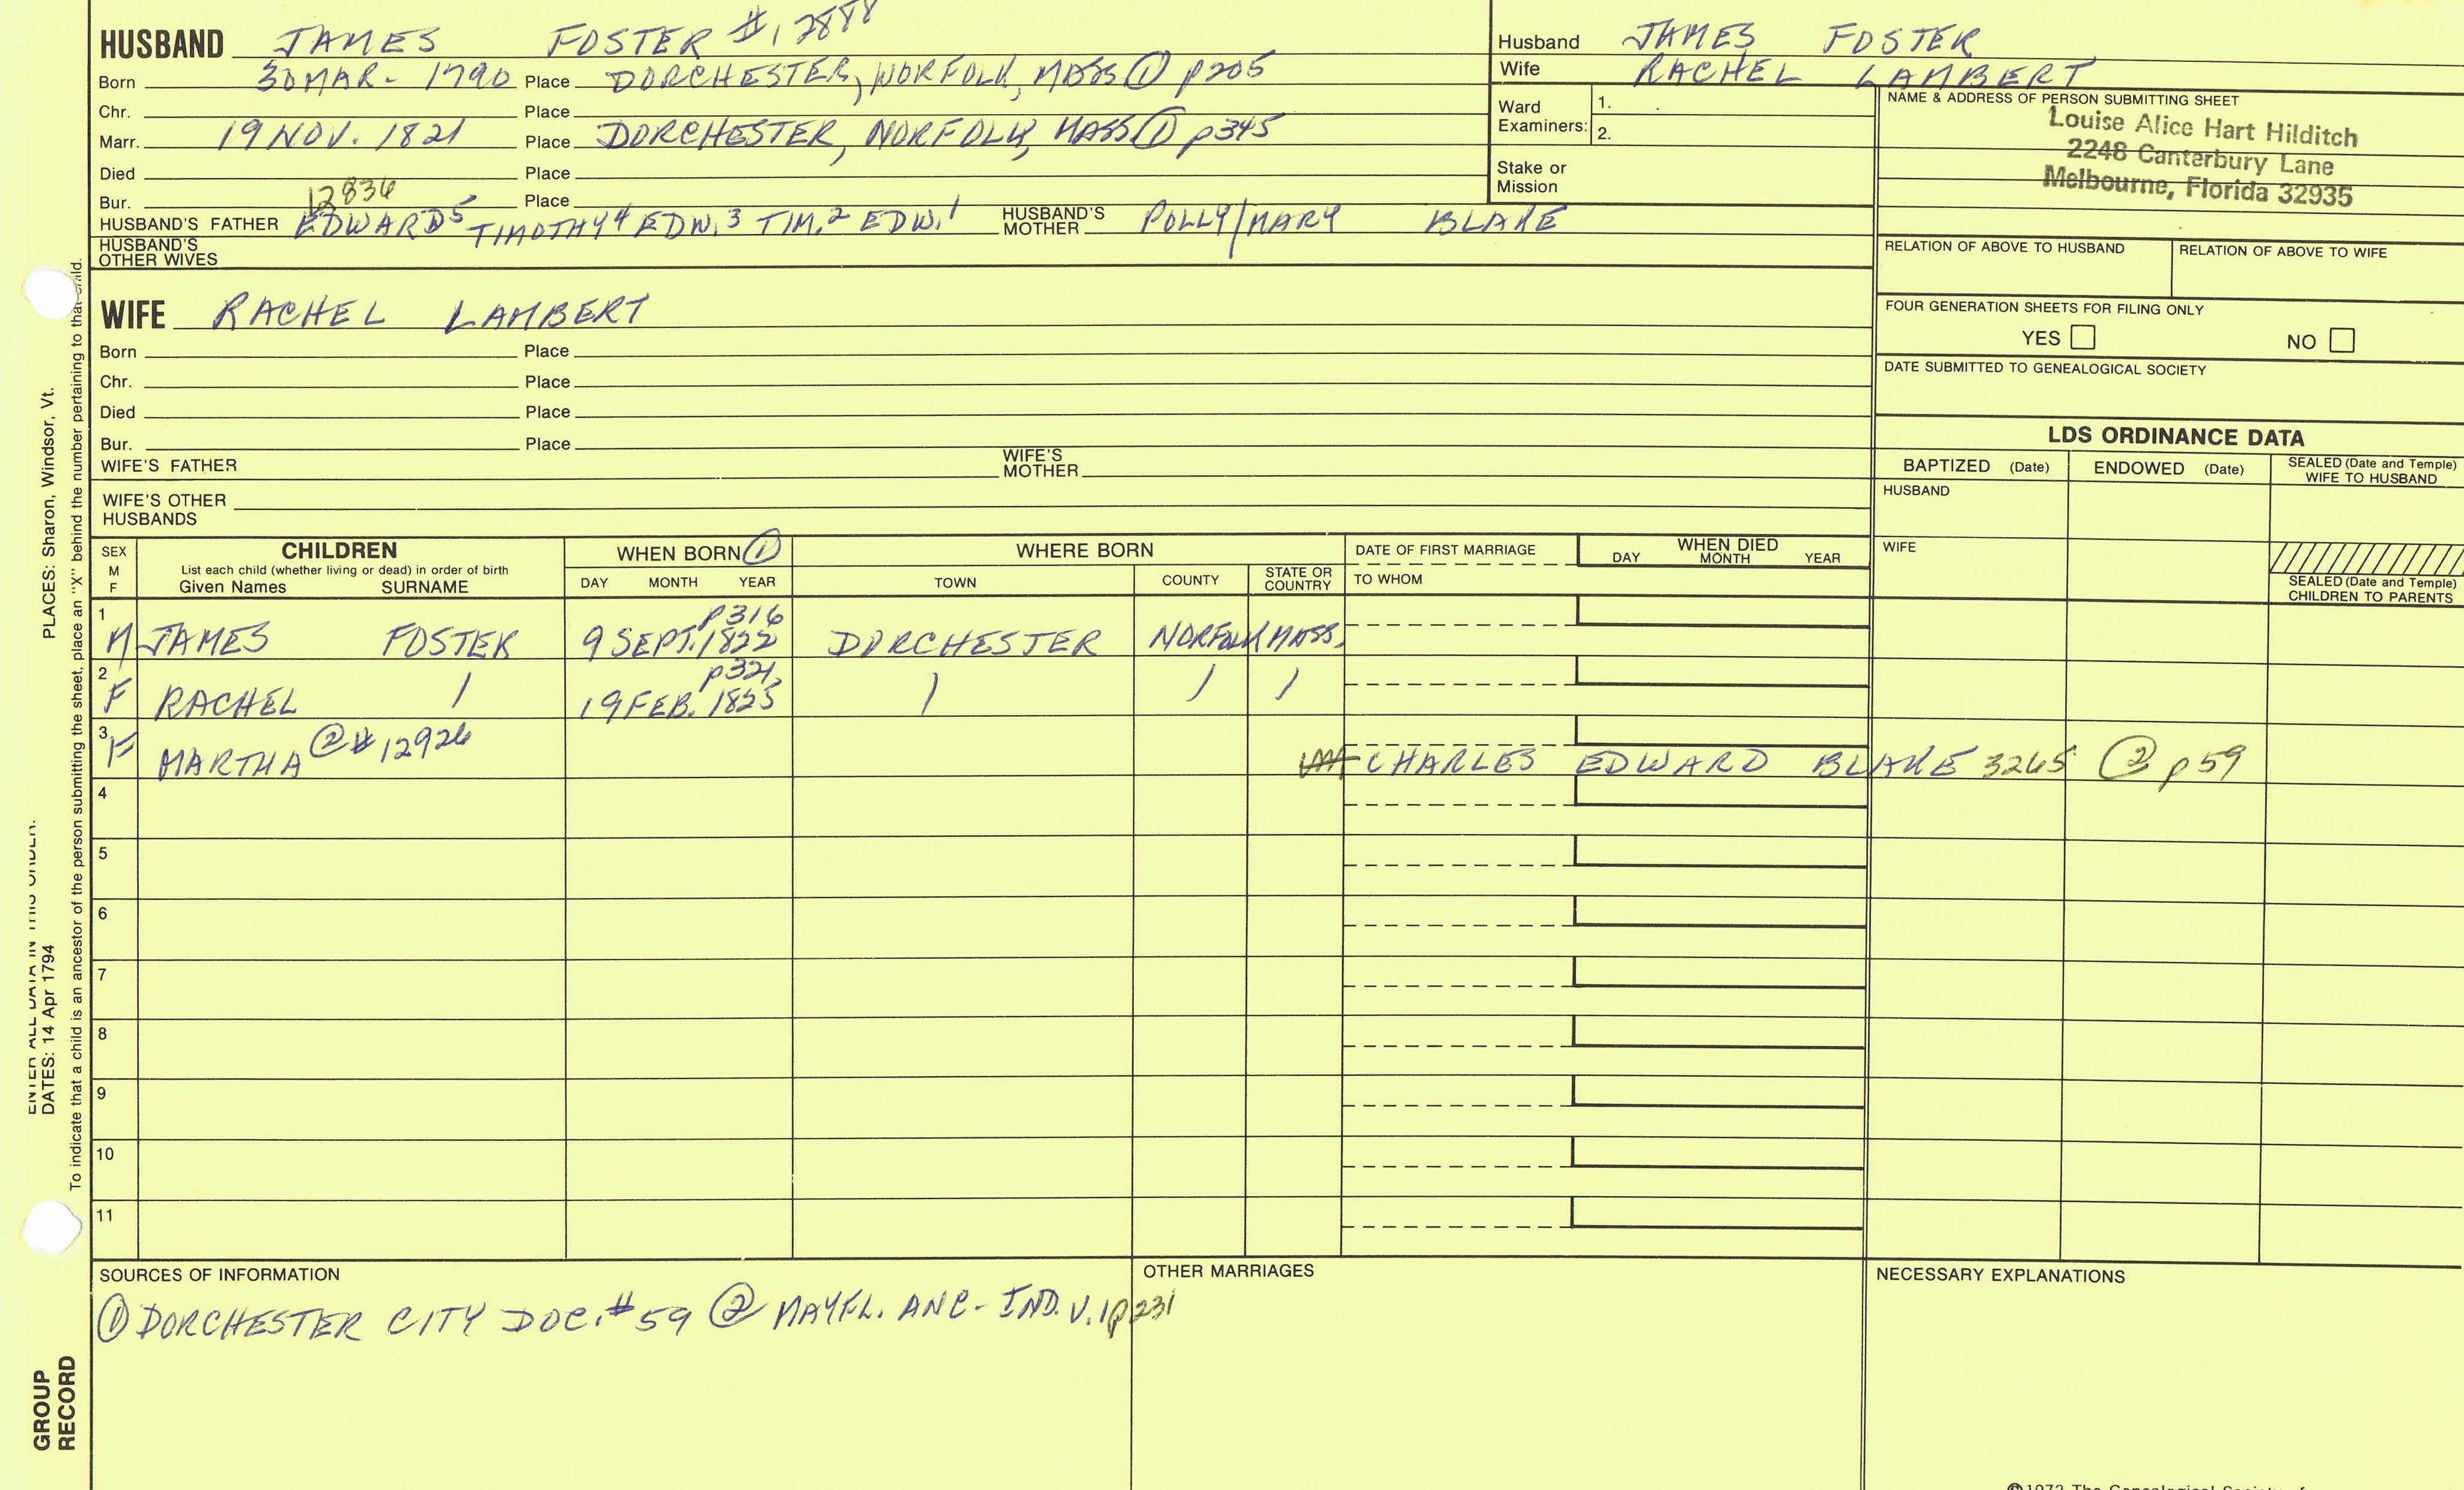 HUSBAND JAMES FOSTER #12888
Born 30 MAR - 1790 Place DORCHESTER, NORFOLK, MASS ① p205
Chr. Place
Marr. 19 NOV. 1821 Place DORCHESTER, NORFOLK, MASS ① p345
Died Place
Bur. Place
12836
HUSBAND'S FATHER EDWARD5 TIMOTHY4 EDW.3 TIM.2 EDW.1 HUSBAND'S MOTHER POLLY/MARY BLAKE
HUSBAND'S OTHER WIVES
Husband JAMES FOSTER
Wife RACHEL LAMBERT
Ward Examiners: 1.
2.
Stake or Mission
NAME & ADDRESS OF PERSON SUBMITTING SHEET
Louise Alice Hart Hilditch
2248 Canterbury Lane
Melbourne, Florida 32935
RELATION OF ABOVE TO HUSBAND RELATION OF ABOVE TO WIFE
FOUR GENERATION SHEETS FOR FILING ONLY
YES NO
DATE SUBMITTED TO GENEALOGICAL SOCIETY
WIFE RACHEL LAMBERT
Born Place
Chr. Place
Died Place
Bur. Place
WIFE'S FATHER WIFE'S MOTHER
WIFE'S OTHER HUSBANDS
LDS ORDINANCE DATA
BAPTIZED (Date) ENDOWED (Date) SEALED (Date and Temple) WIFE TO HUSBAND
HUSBAND
WIFE
SEALED (Date and Temple) CHILDREN TO PARENTS
SEX M F
CHILDREN
List each child (whether living or dead) in order of birth
Given Names SURNAME
WHEN BORN ①
DAY MONTH YEAR
WHERE BORN
TOWN COUNTY STATE OR COUNTRY
DATE OF FIRST MARRIAGE
TO WHOM
WHEN DIED
DAY MONTH YEAR
1 M JAMES FOSTER 9 SEPT. 1822 p316 DORCHESTER NORFOLK MASS.
2 F RACHEL / 19 FEB. 1825 p321 / / /
3 F MARTHA ② # 12926 CHARLES EDWARD BLAKE 3265 ② p59
4
5
6
7
8
9
10
11
SOURCES OF INFORMATION
① DORCHESTER CITY DOC. #59 ② MAYFL. ANC - IND. V. 1 p231
OTHER MARRIAGES
NECESSARY EXPLANATIONS
PLACES: Sharon, Windsor, Vt.
ENTER ALL DATA IN THIS ORDER:
DATES: 14 Apr 1794
To indicate that a child is an ancestor of the person submitting the sheet, place an "X" behind the number pertaining to that child.
GROUP RECORD
©1972 The Genealogical Society of